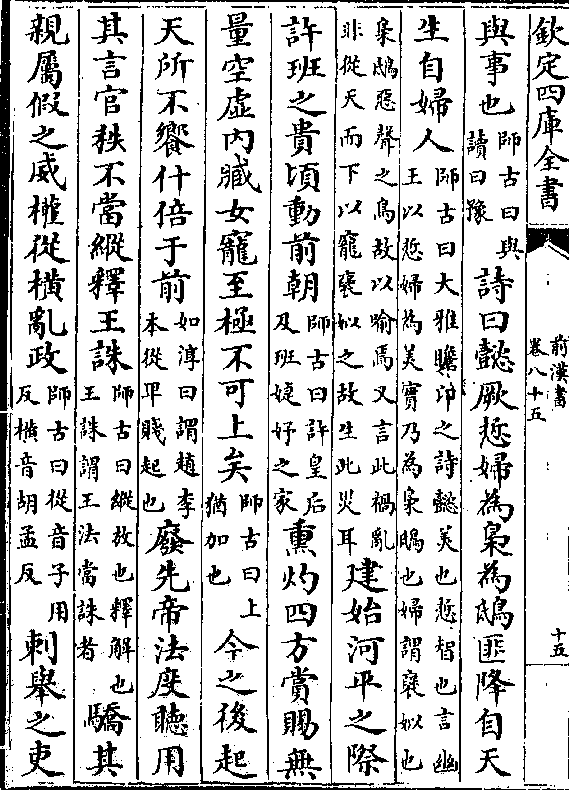 欽定四庫全書
前漢書
卷八十五
十五
與事也師古曰與讀曰豫詩曰懿厥悊婦為梟為鴟匪降自天
生自婦人師古曰大雅瞻卬之詩懿美也悊智也言幽王以悊婦為美實乃為梟鴟也婦謂襃姒也
梟鴟惡聲之鳥故以喻焉又言此禍亂非從天而下以寵襃姒之故生此災耳建始河平之際
許班之貴頃動前朝師古曰許皇后及班婕妤之家熏灼四方賞賜無
量空虛内臧女寵至極不可上矣師古曰上猶加也今之後起
天所不饗什倍于前如淳曰謂趙李本從卑賤起也廢先帝法度聽用
其言官秩不當縱釋王誅師古曰縱放也釋解也王誅謂王法當誅者驕其
親屬假之威權從橫亂政師古曰從音子用反橫音胡孟反刺舉之吏